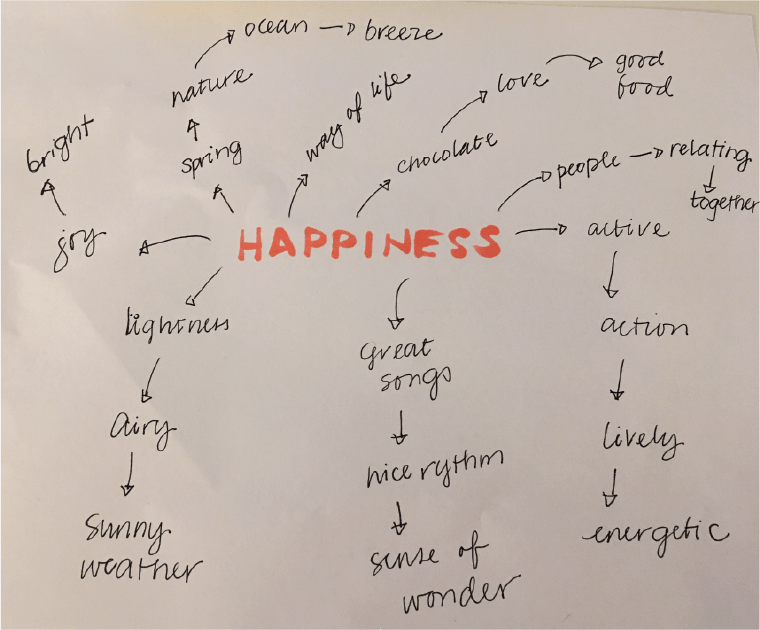 ocean
breeze
nature
spring
way of life
chocolate
love
good
food
bright
joy
people
relating
together
HAPPINESS
active
lightness
airy
sunny
weather
great
songs
nice rythm
sense of
wonder
action
lively
energetic